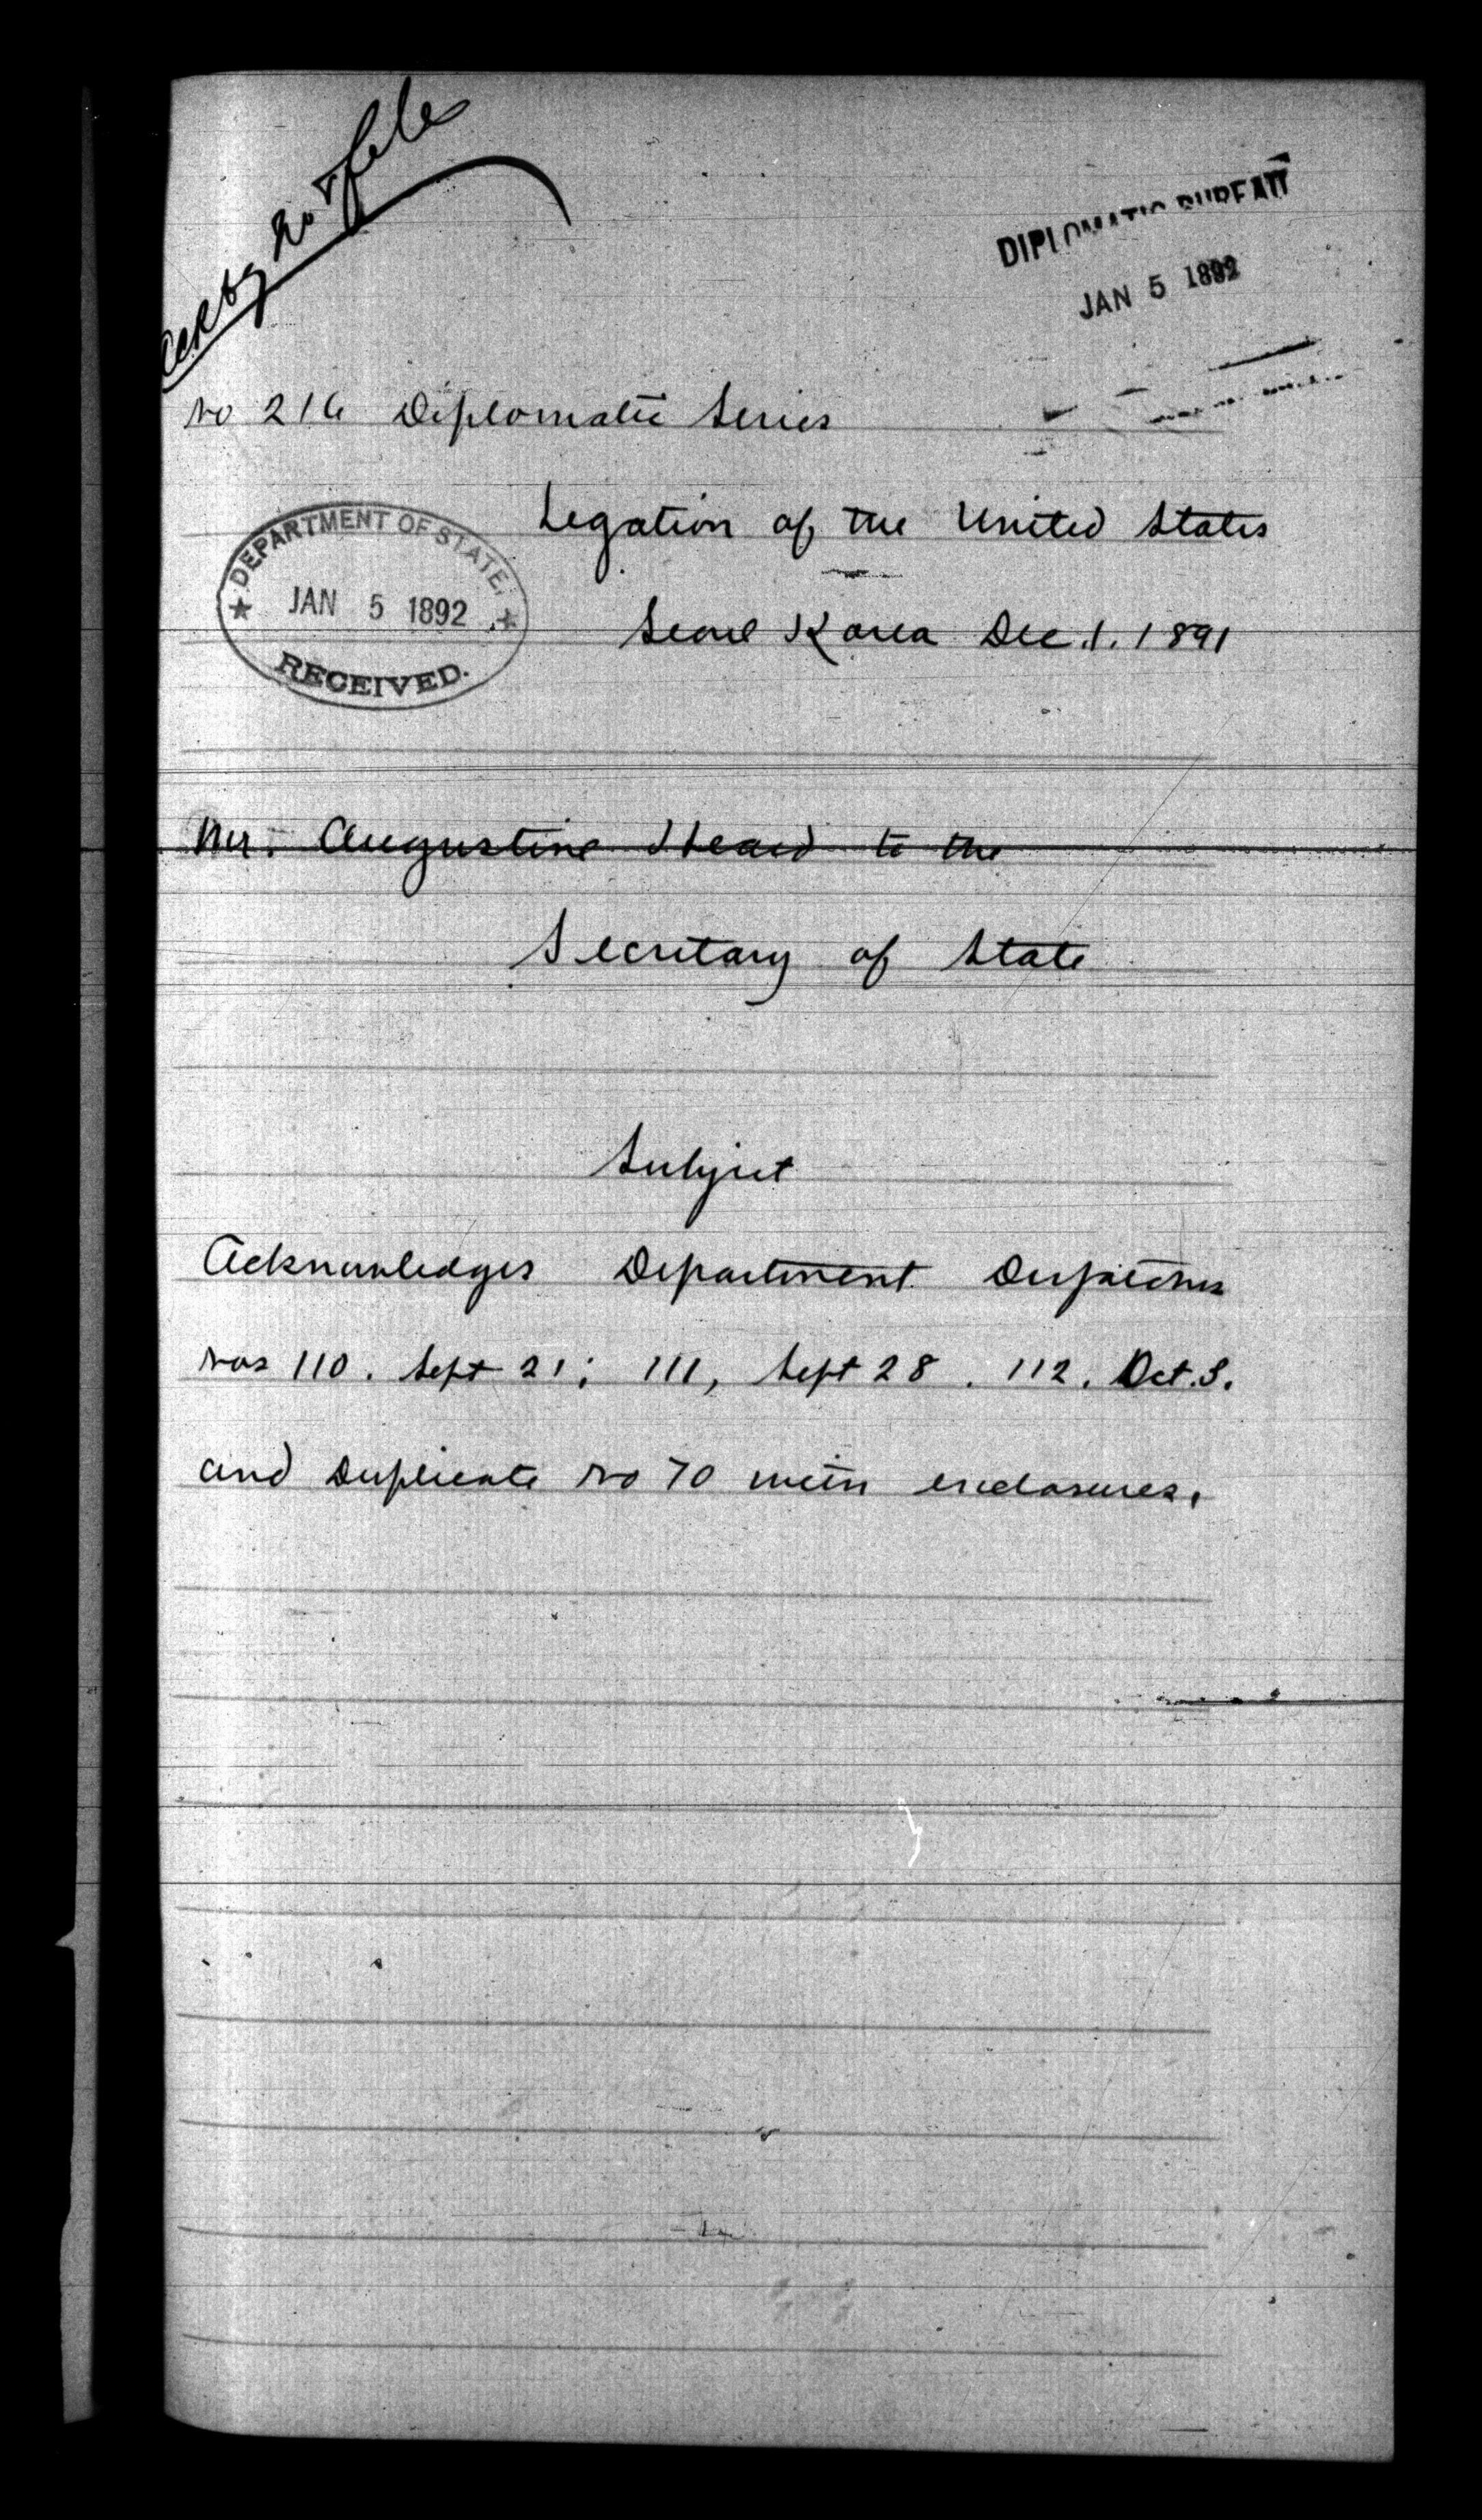 Ack by not file
DIPLOMATIC BUREAU
JAN 5 1892
No 216 Diplomatic Series
DEPARTMENT OF STATE.
JAN 5 1892
RECEIVED.
Legation of the United States
Seoul Korea Dec. 1. 1891
Mr. Augustine Heard to the
Secretary of State
Subject
Acknowledges Department Dispatches
Nos 110. Sept 21; 111, Sept 28. 112. Oct. 3.
and Duplicate No 70 with enclosures.